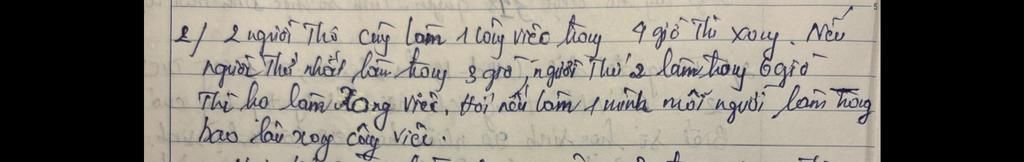 2/ 2 người Thợ cùng làm 1 công việc trong 4 giờ Thì xong. Nếu
người Thứ nhất làm trong 3 giờ, người Thứ 2 làm trong 6 giờ
Thì họ làm xong việc. Hỏi nếu làm 1 mình mỗi người làm trong
bao lâu xong công việc.